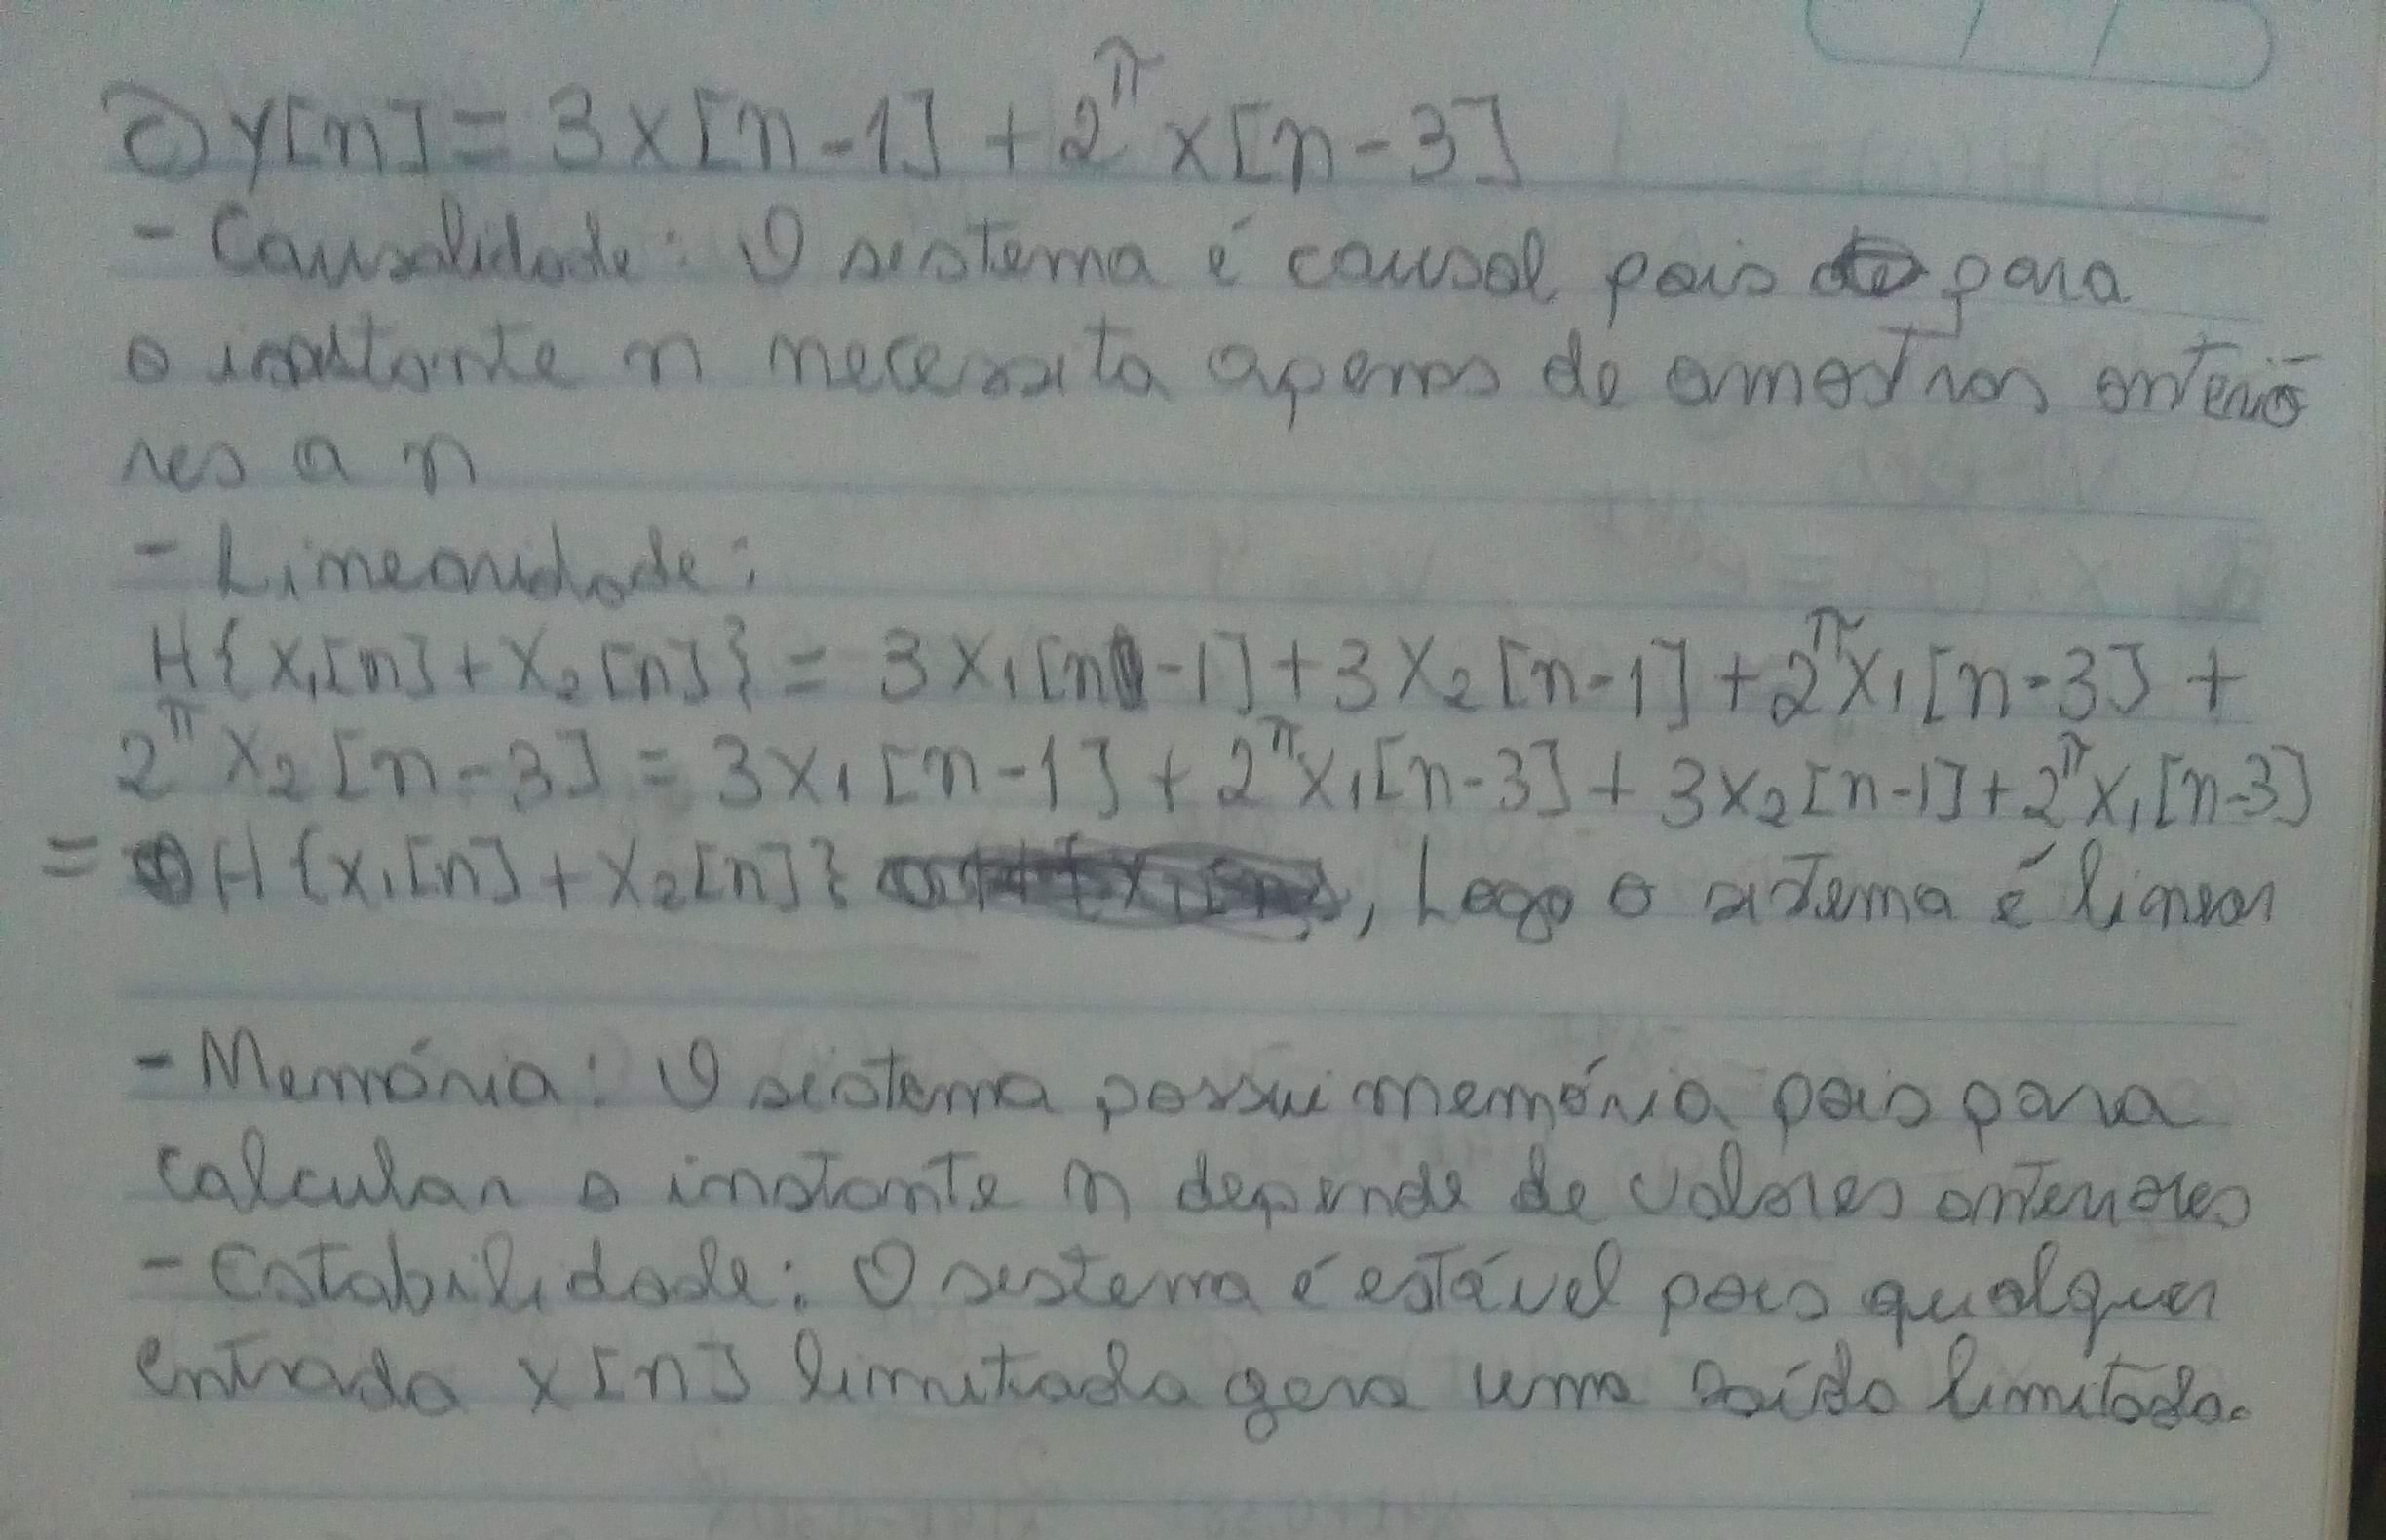 c) y[n] = 3x[n-1] + 2^π x[n-3]
- Causalidade: O sistema é causal pois para
o instante n necessita apenas de amostras anterio
res a n
- Linearidade:
H{x₁[n] + x₂[n]} = 3x₁[n-1] + 3x₂[n-1] + 2^π x₁[n-3] +
2^π x₂[n-3] = 3x₁[n-1] + 2^π x₁[n-3] + 3x₂[n-1] + 2^π x₁[n-3]
= H{x₁[n] + x₂[n]} , Logo o sistema é linear
- Memória: O sistema possui memória pois para
calcular o instante n depende de valores anteriores
- Estabilidade: O sistema é estável pois qualquer
entrada x[n] limitada gera uma saída limitada.